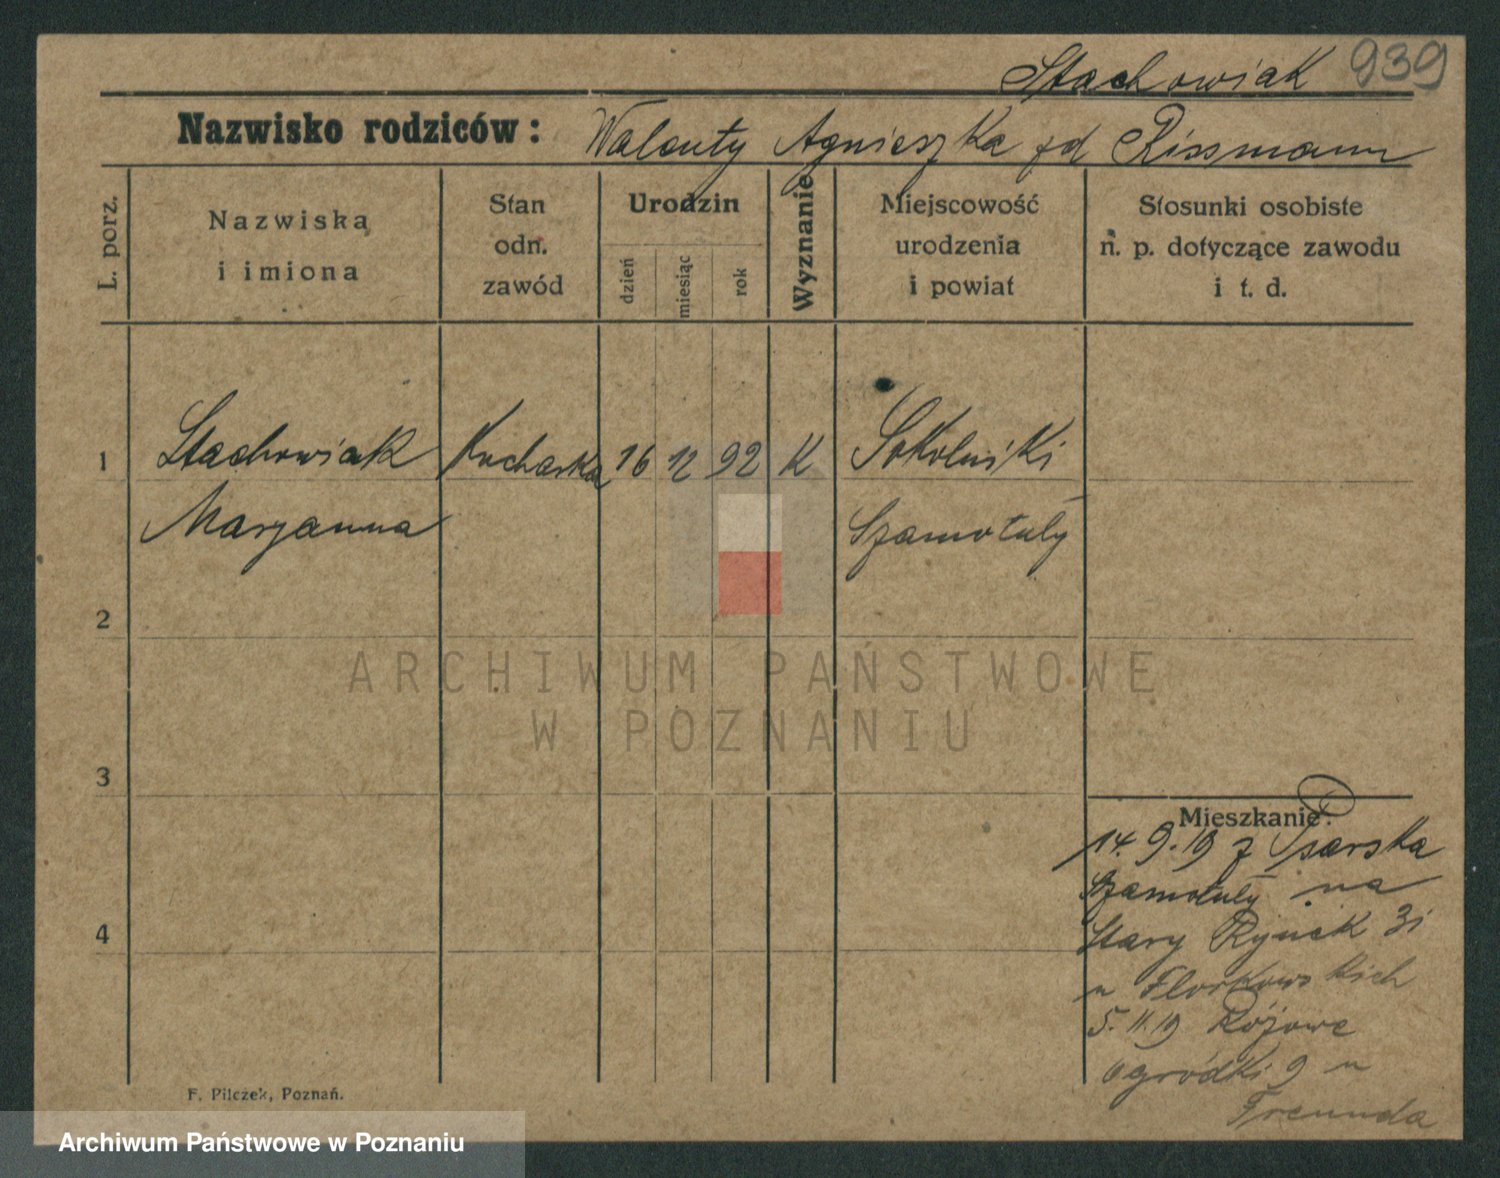 Stachowiak 939
Nazwisko rodziców: Walenty Agnieszka zd Rissmann
L. porz.
Nazwiska
i imiona
Stan
odn.
zawód
Urodzin
dzień
miesiąc
rok
Wyznanie
Miejscowość
urodzenia
i powiat
Stosunki osobiste
n. p. dotyczące zawodu
i t. d.
1 Stachowiak Kucharka 16 12 92 K Sokolniki
Marjanna Szamotuły
2
3
4
Mieszkanie:
14.9.19 z Psarska
Szamotuły na
Stary Rynek 31
u Florkowskich
5.11.19 Różowe
ogródki 9 u
Freunda
F. Pilczek, Poznań.
ARCHIWUM PAŃSTWOWE
W POZNANIU
Archiwum Państwowe w Poznaniu